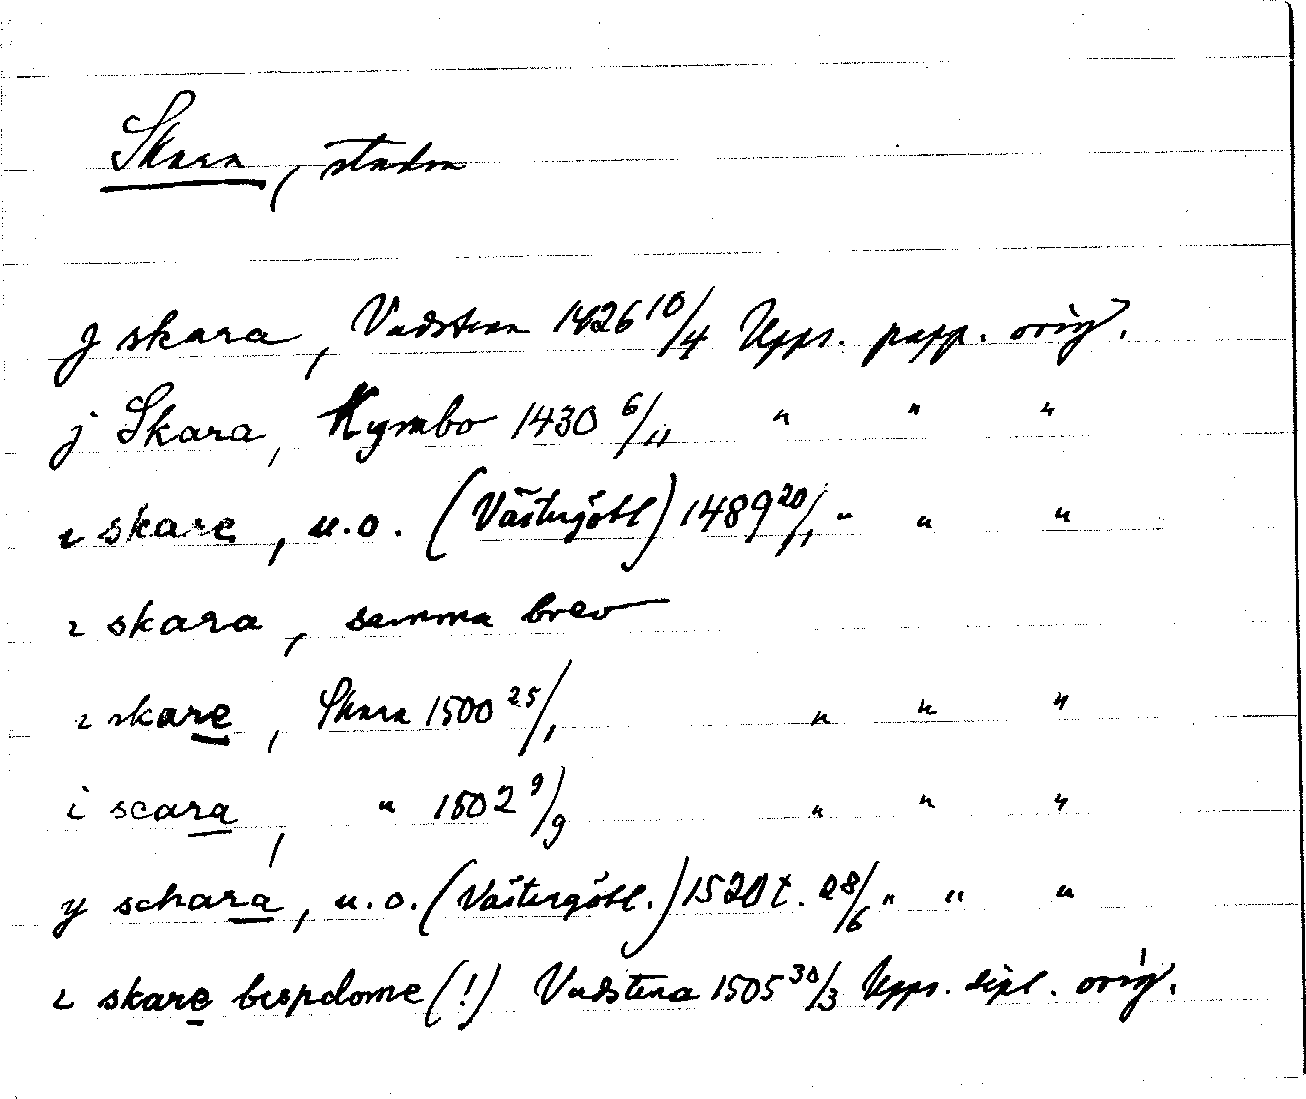 Skara, staden
J skara, Vadstena 1426 10/4 Upps. papp. orig.
j Skara, Kymbo 1430 6/11 " " "
i skare, u.o. (Västergötl) 1489 20/1 " " "
i skara, samma brev
i skare, Skara 1500 25/1 " " "
i scara, " 1502 9/9 " " "
y schara, u.o. (Västergötl.) 1520 t. 28/6 " " "
i skare bispdome (!) Vadstena 1505 30/3 Upps. dipl. orig.